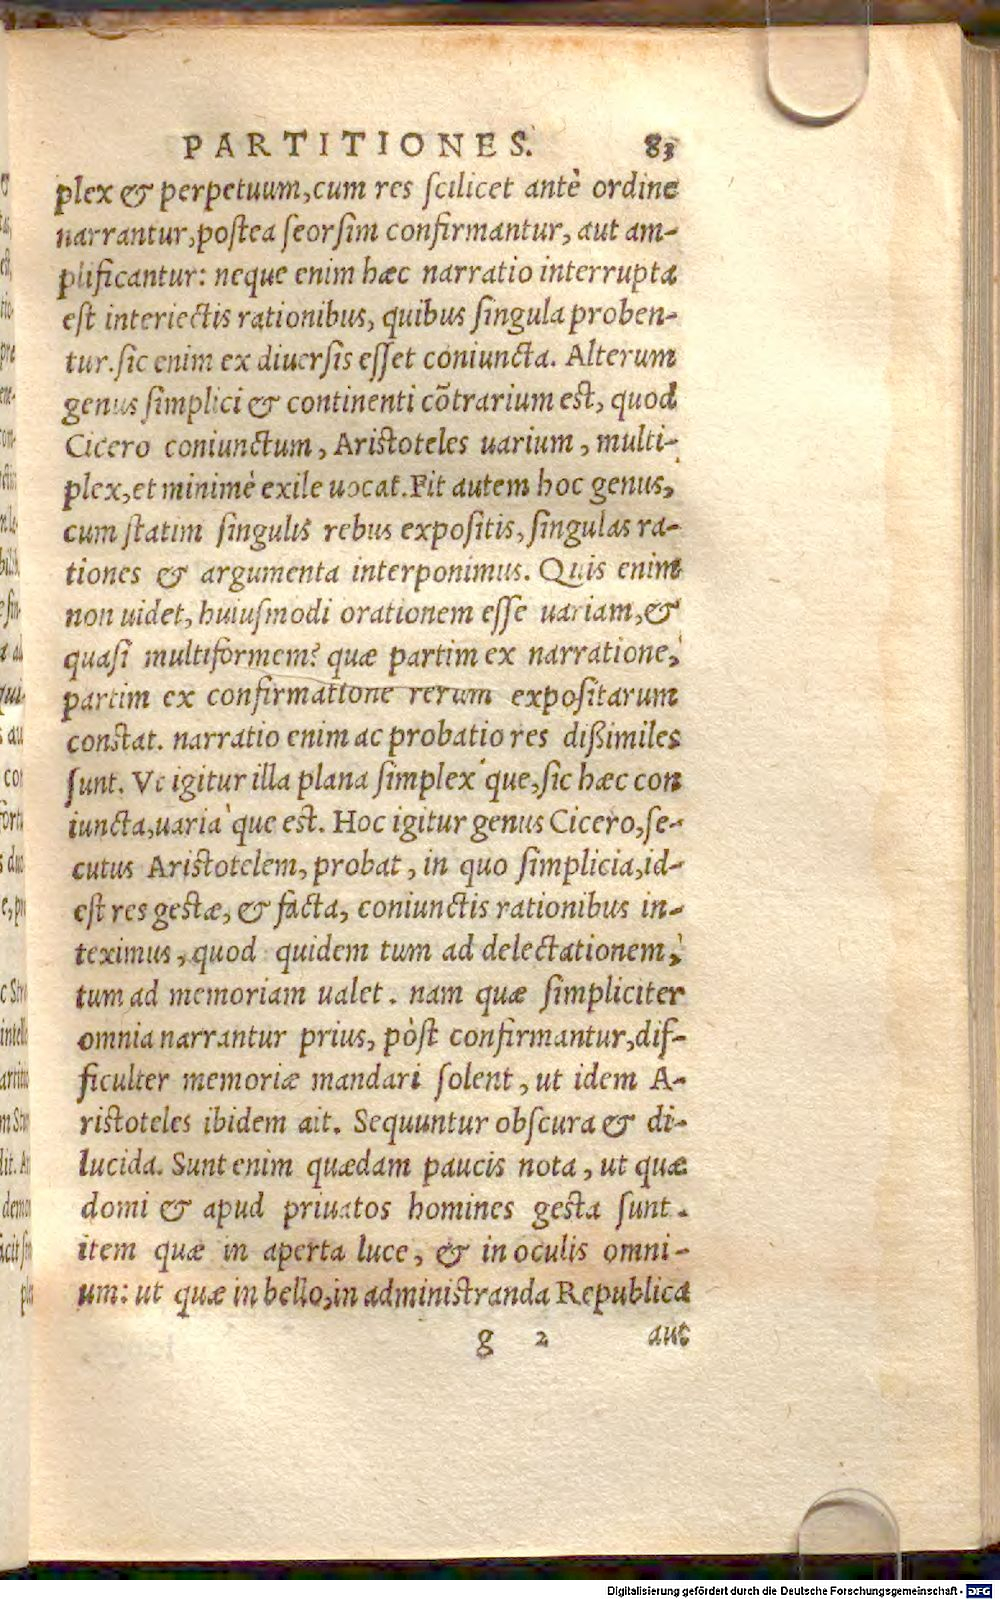 PARTITIONES. 83
plex & perpetuum, cum res scilicet antè ordine
narrantur, postea seorsim confirmantur, aut am-
plificantur: neque enim hæc narratio interrupta
est interiectis rationibus, quibus singula proben-
tur. sic enim ex diuersis esset coniuncta. Alterum
genus simplici & continenti cõtrarium est, quod
Cicero coniunctum, Aristoteles uarium, multi-
plex, et minimè exile uocat. Fit autem hoc genus,
cum statim singulis rebus expositis, singulas ra-
tiones & argumenta interponimus. Quis enim
non uidet, huiusmodi orationem esse uariam, &
quasi multiformem? quæ partim ex narratione,
partim ex confirmatione rerum expositarum
constat. narratio enim ac probatio res dißimiles
sunt. Vt igitur illa plana simplex'que, sic hæc con
iuncta, uaria'que est. Hoc igitur genus Cicero, se-
cutus Aristotelem, probat, in quo simplicia, id-
est res gestæ, & facta, coniunctis rationibus in-
teximus, quod quidem tum ad delectationem,
tum ad memoriam ualet. nam quæ simpliciter
omnia narrantur prius, pòst confirmantur, dif-
ficulter memoriæ mandari solent, ut idem A-
ristoteles ibidem ait. Sequuntur obscura & di-
lucida. Sunt enim quædam paucis nota, ut quæ
domi & apud priuatos homines gesta sunt.
item quæ in aperta luce, & in oculis omni-
um: ut quæ in bello, in administranda Republica
g 2 aut
Digitalisierung gefördert durch die Deutsche Forschungsgemeinschaft - DFG